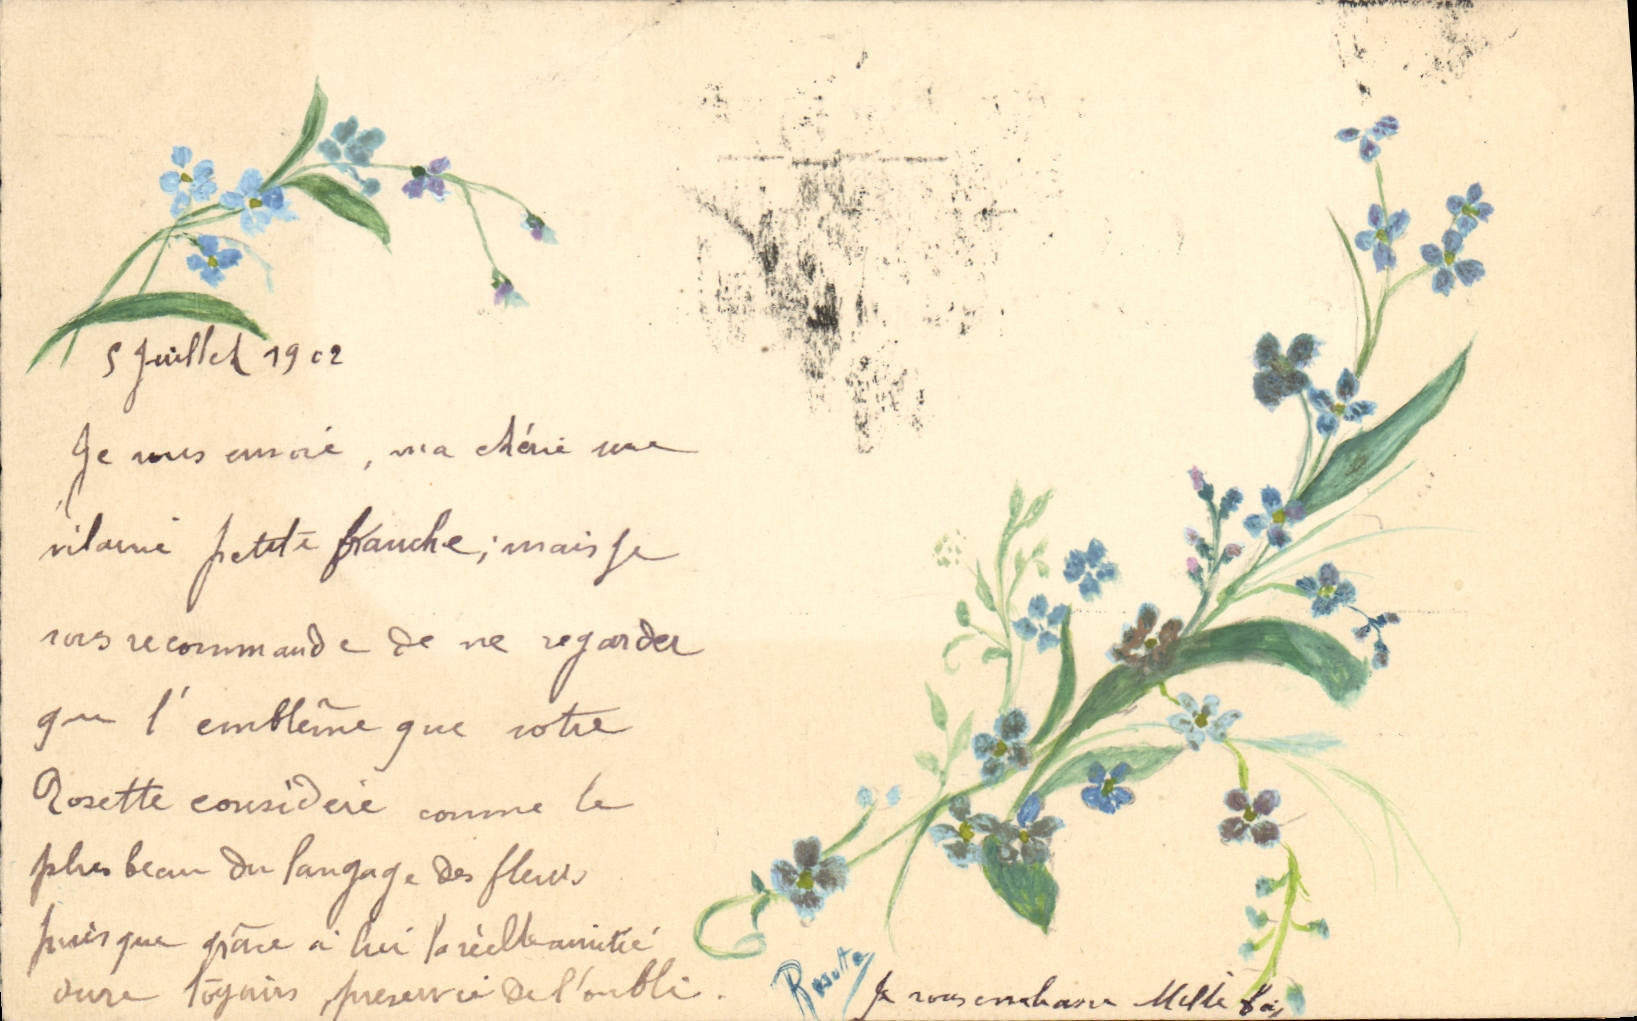 5 Juillet 1902
Je vous envoie, ma chérie une
vilaine petite branche; mais je
vous recommande de ne regarder
que l'emblême que votre
Rosette considère comme le
plus beau du langage des fleurs
puisque grâce à lui la réelle amitié
dure toujours preservée de l'oubli.
Rosette
Je vous embrasse Mille fois